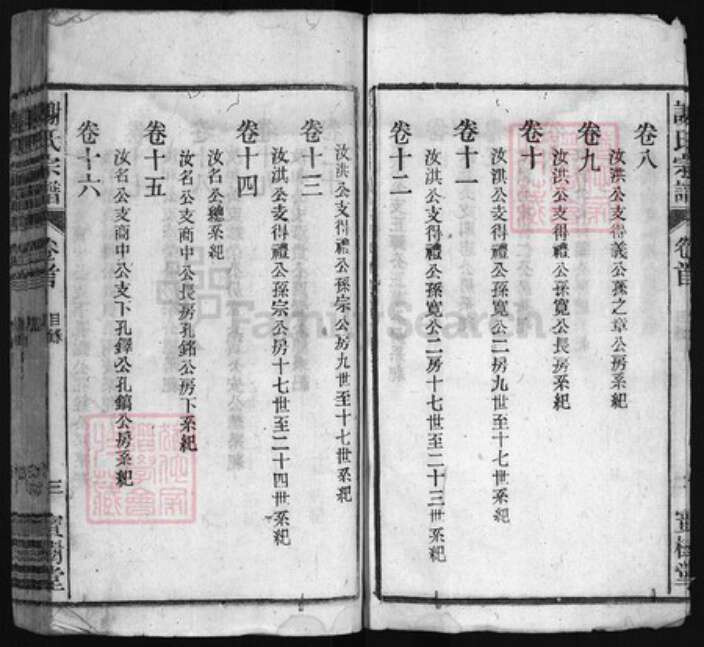 謝氏宗譜
卷首
寶樹堂
卷八
汝洪公支得義公孫之章公房系紀
卷九
汝洪公支得禮公孫寬公長房系紀
卷十
汝洪公支得禮公孫寬公二房九世至十七世系紀
卷十一
汝淇公支得禮公孫寬公二房十七世至二十三世系紀
卷十二
汝洪公支得禮公孫宗公房九世至十七世系紀
卷十三
汝淇公支得禮公孫宗公房十七世至二十四世系紀
卷十四
汝名公總系紀
汝名公支商中公長房孔銘公房下系紀
卷十五
汝名公支商中公支下孔鐸公孔鎬公房系紀
卷十六
謝氏宗譜
卷首
目錄
三
寶樹堂
FamilySearch